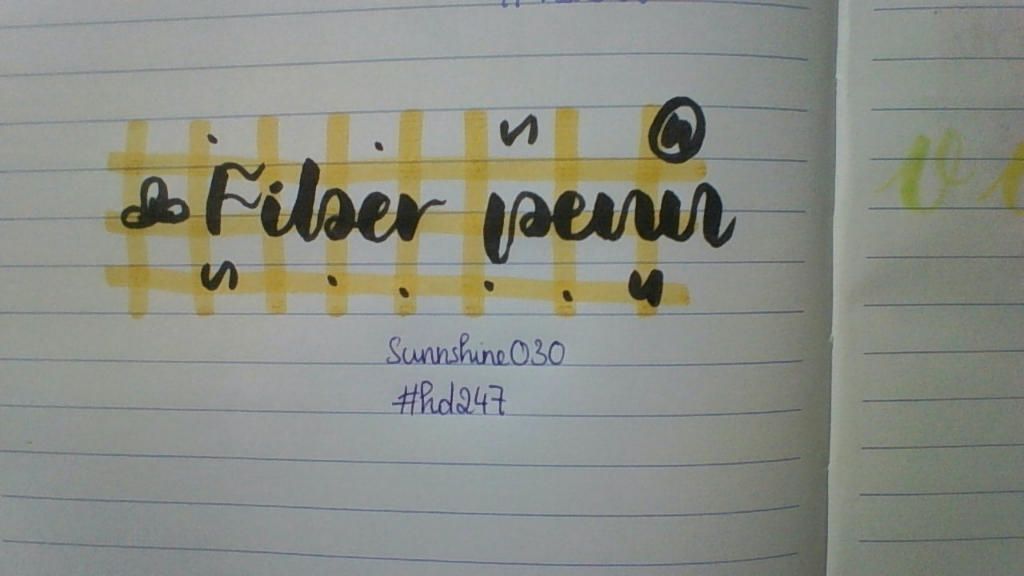 Fiber penn
Sunnshine030
#hd247